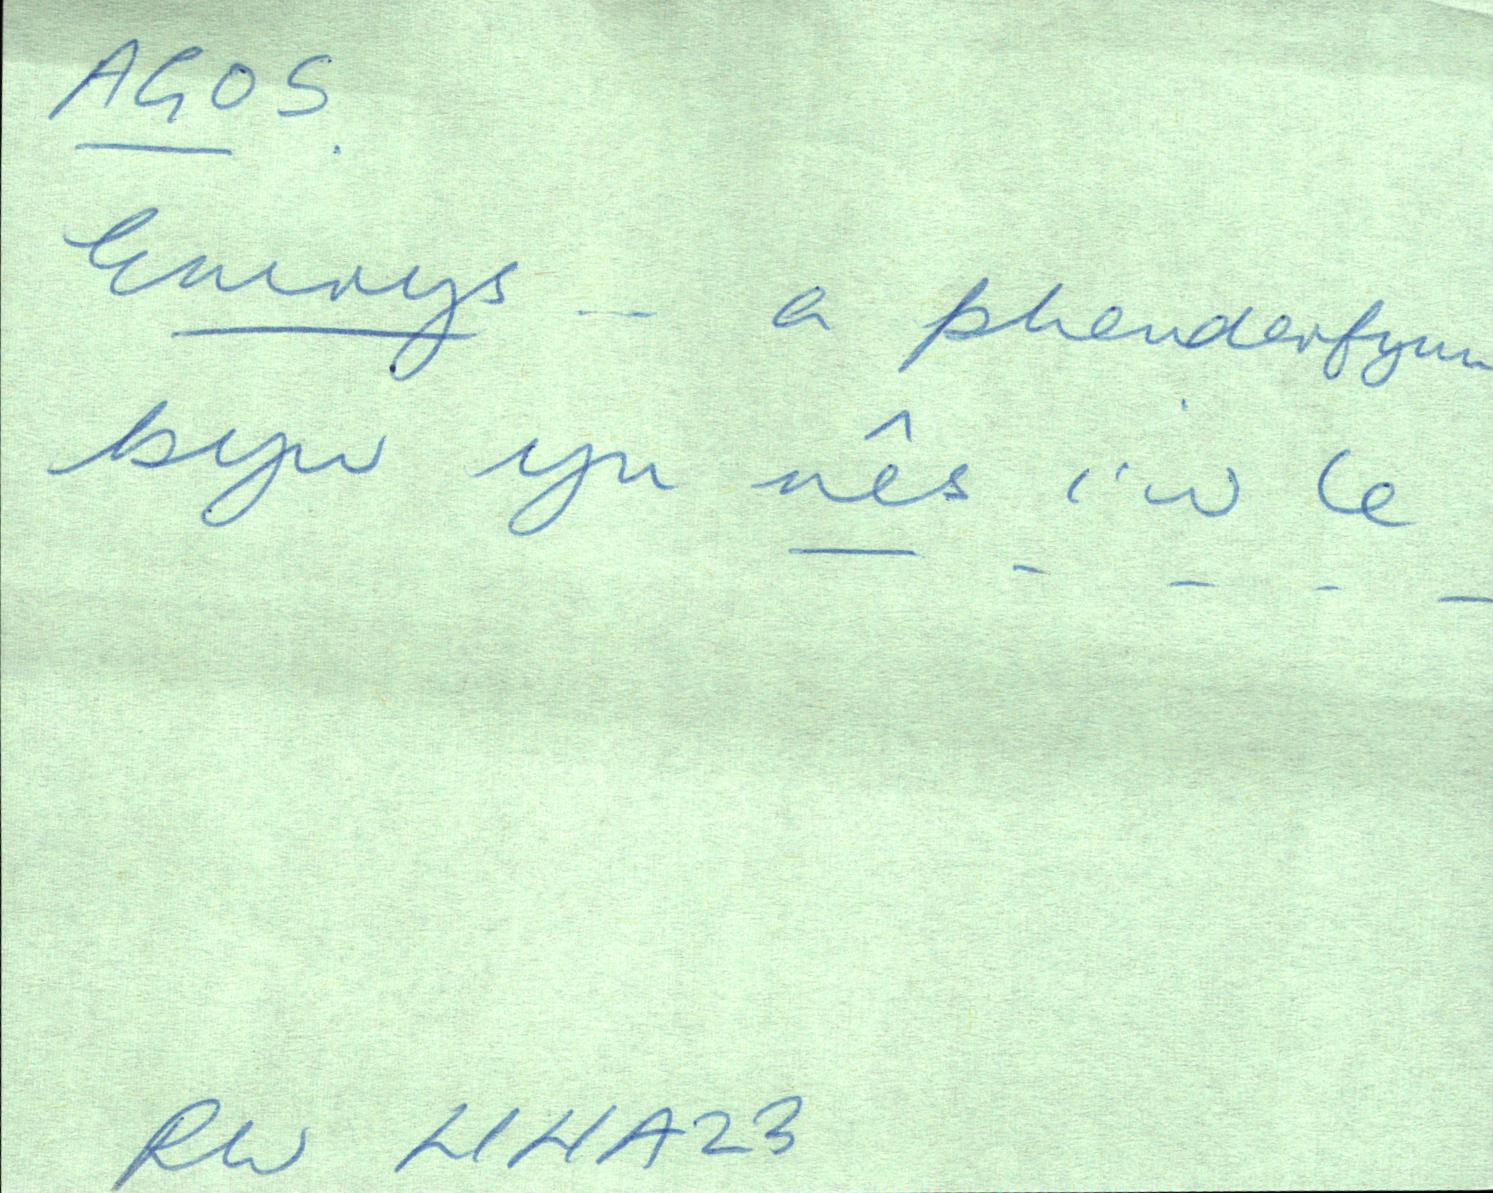 AGOS.
Emrys — a phenderfynu
byw yn nês i'w le
RW HHA23